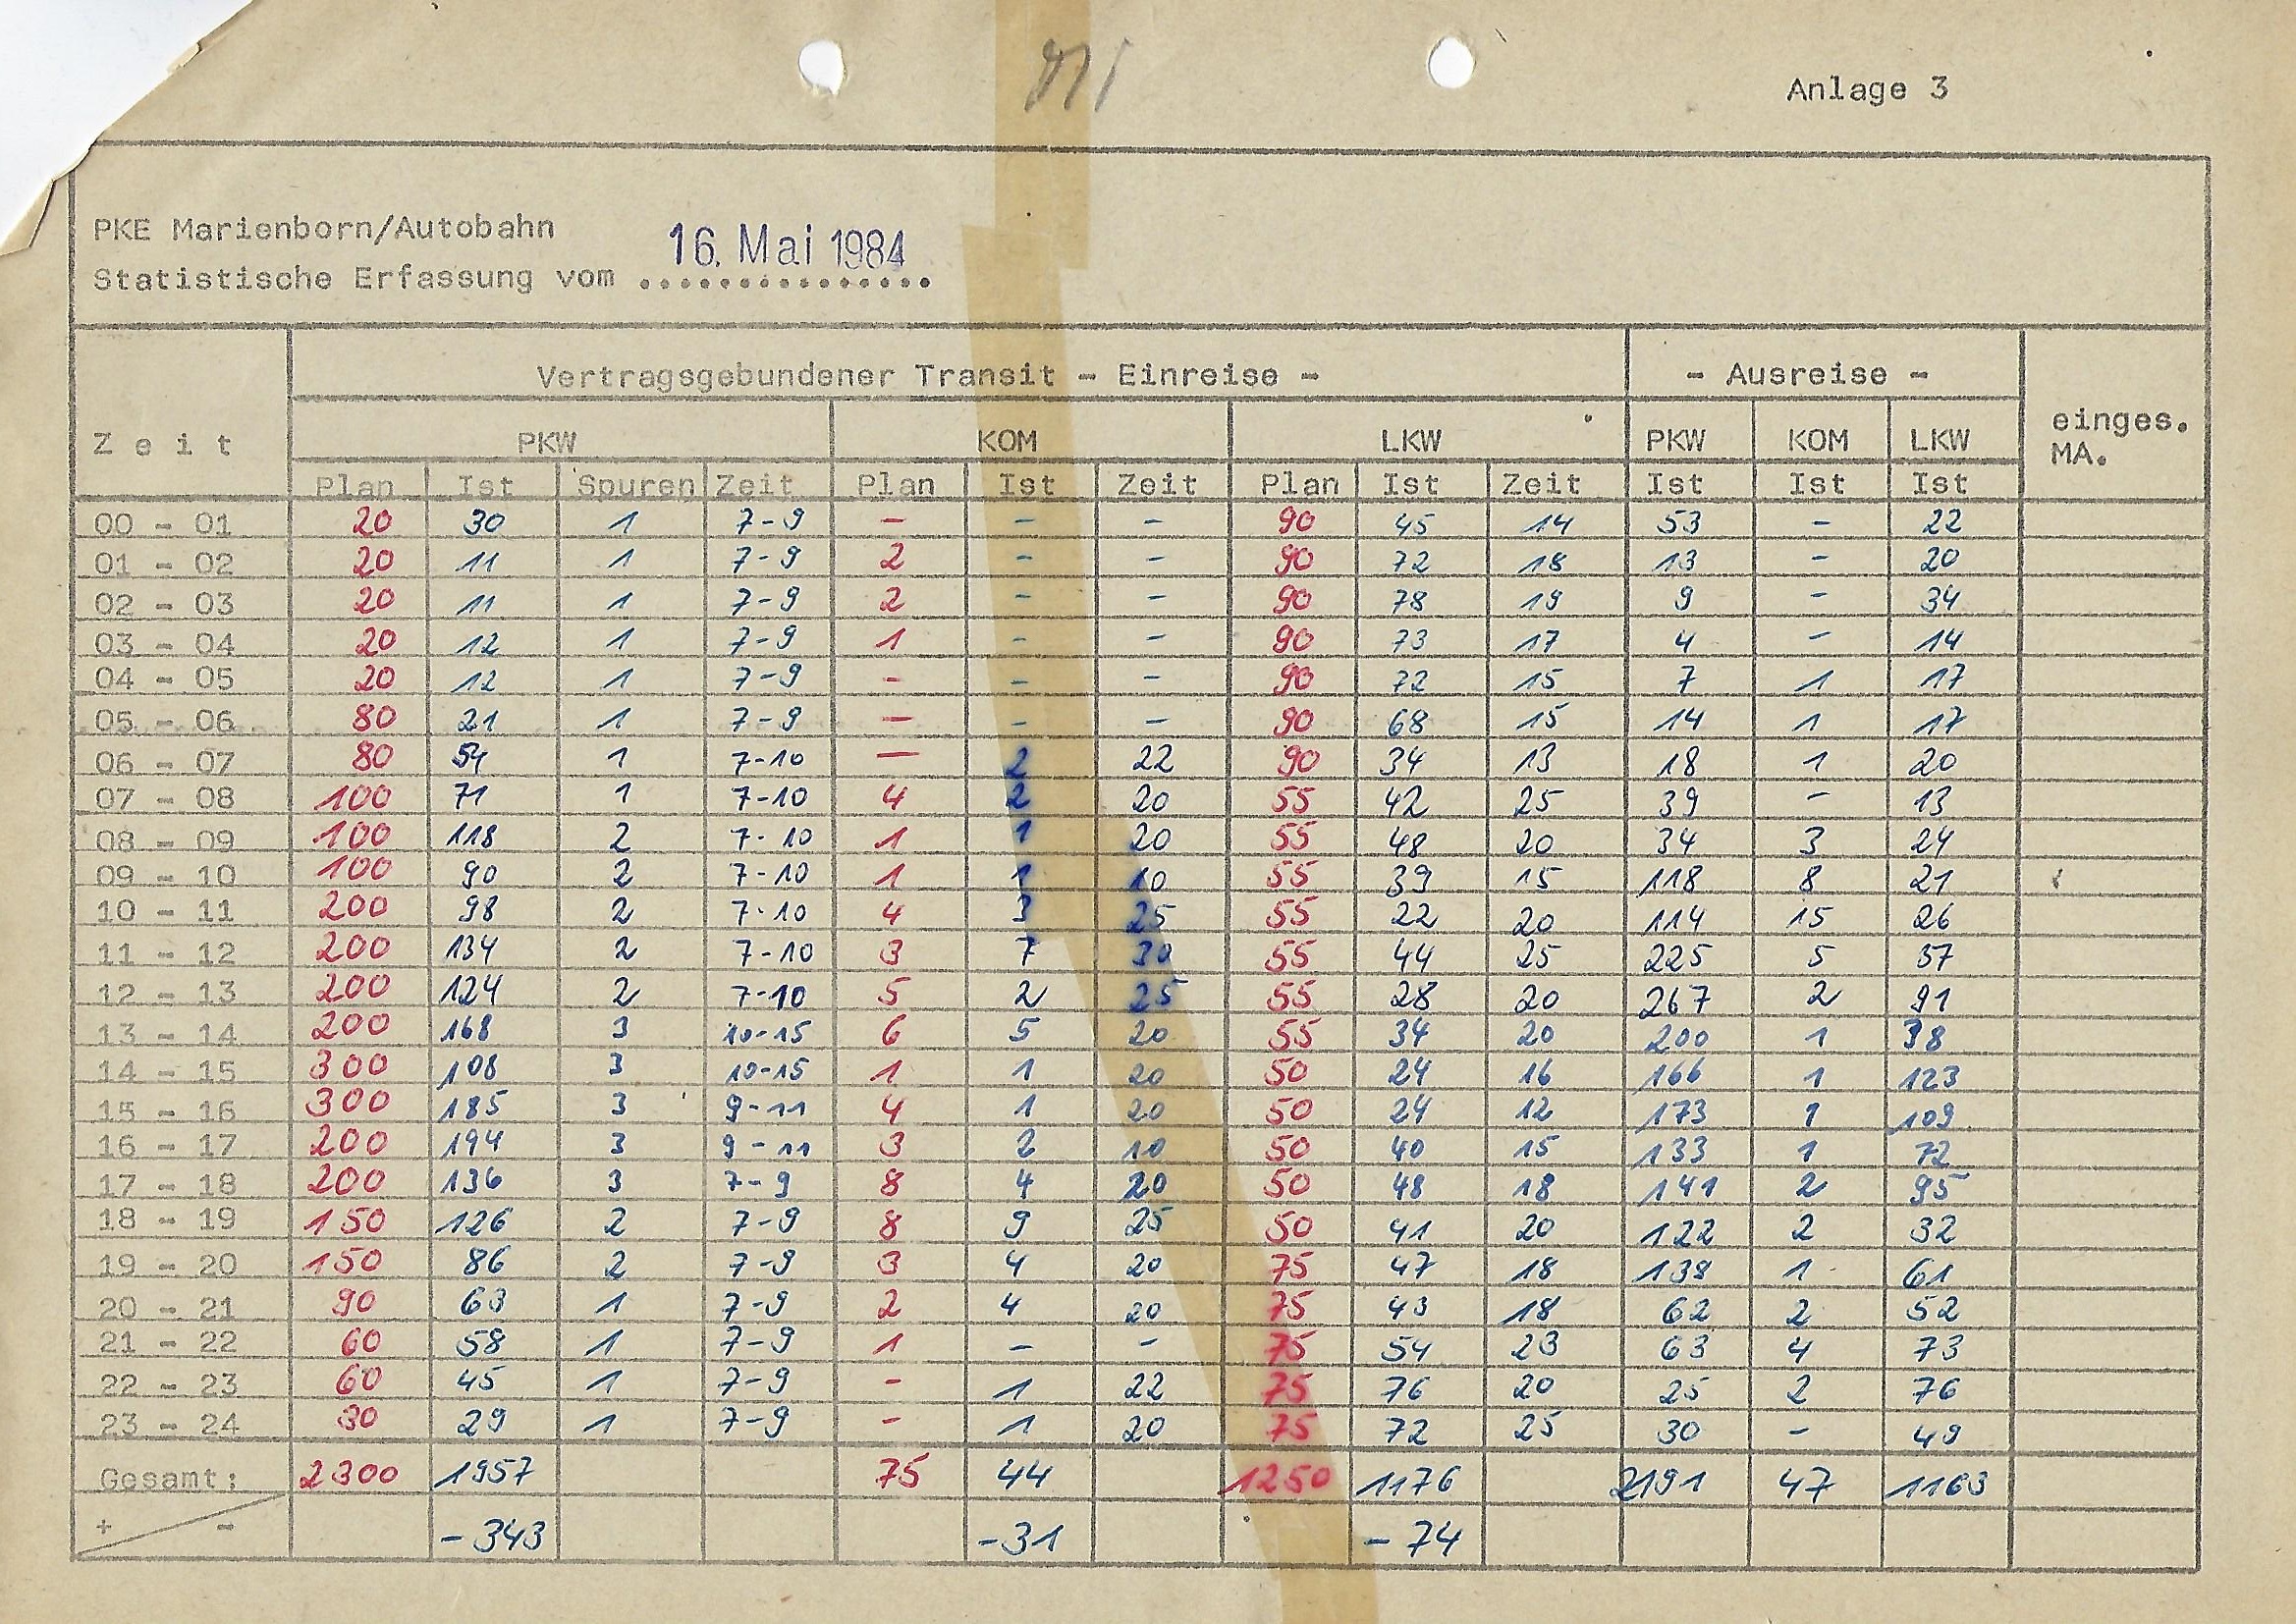 Anlage 3
PKE Marienborn/Autobahn
16. Mai 1984
Statistische Erfassung vom ...............
Vertragsgebundener Transit - Einreise - - Ausreise -
Zeit PKW KOM LKW PKW KOM LKW einges. MA.
Plan Ist Spuren Zeit Plan Ist Zeit Plan Ist Zeit Ist Ist Ist
00 - 01 20 30 1 7-9 - - - 90 45 14 53 - 22
01 - 02 20 11 1 7-9 2 - - 90 72 18 13 - 20
02 - 03 20 11 1 7-9 2 - - 90 78 19 9 - 34
03 - 04 20 12 1 7-9 1 - - 90 73 17 4 - 14
04 - 05 20 12 1 7-9 - - - 90 72 15 7 1 17
05 - 06 80 21 1 7-9 - - - 90 68 15 14 1 17
06 - 07 80 54 1 7-10 - 2 22 90 34 13 18 1 20
07 - 08 100 71 1 7-10 4 2 20 55 42 25 39 - 13
08 - 09 100 118 2 7-10 1 1 20 55 48 20 34 3 24
09 - 10 100 90 2 7-10 1 1 10 55 39 15 118 8 21
10 - 11 200 98 2 7-10 4 3 25 55 22 20 114 15 26
11 - 12 200 134 2 7-10 3 7 30 55 44 25 225 5 57
12 - 13 200 124 2 7-10 5 2 25 55 28 20 267 2 91
13 - 14 200 168 3 10-15 6 5 20 55 34 20 200 1 38
14 - 15 300 108 3 10-15 1 1 20 50 24 16 166 1 123
15 - 16 300 185 3 9-11 4 1 20 50 24 12 173 1 109
16 - 17 200 194 3 9-11 3 2 10 50 40 15 133 1 72
17 - 18 200 136 3 7-9 8 4 20 50 48 18 141 2 95
18 - 19 150 126 2 7-9 8 9 25 50 41 20 122 2 32
19 - 20 150 86 2 7-9 3 4 20 75 47 18 139 1 61
20 - 21 90 63 1 7-9 2 4 20 75 43 18 62 2 52
21 - 22 60 58 1 7-9 1 - - 75 54 23 63 4 73
22 - 23 60 45 1 7-9 - 1 22 75 76 20 25 2 76
23 - 24 30 29 1 7-9 - 1 20 75 72 25 30 - 49
Gesamt: 2300 1957 75 44 1250 1176 2191 47 1163
+ - -343 -31 -74